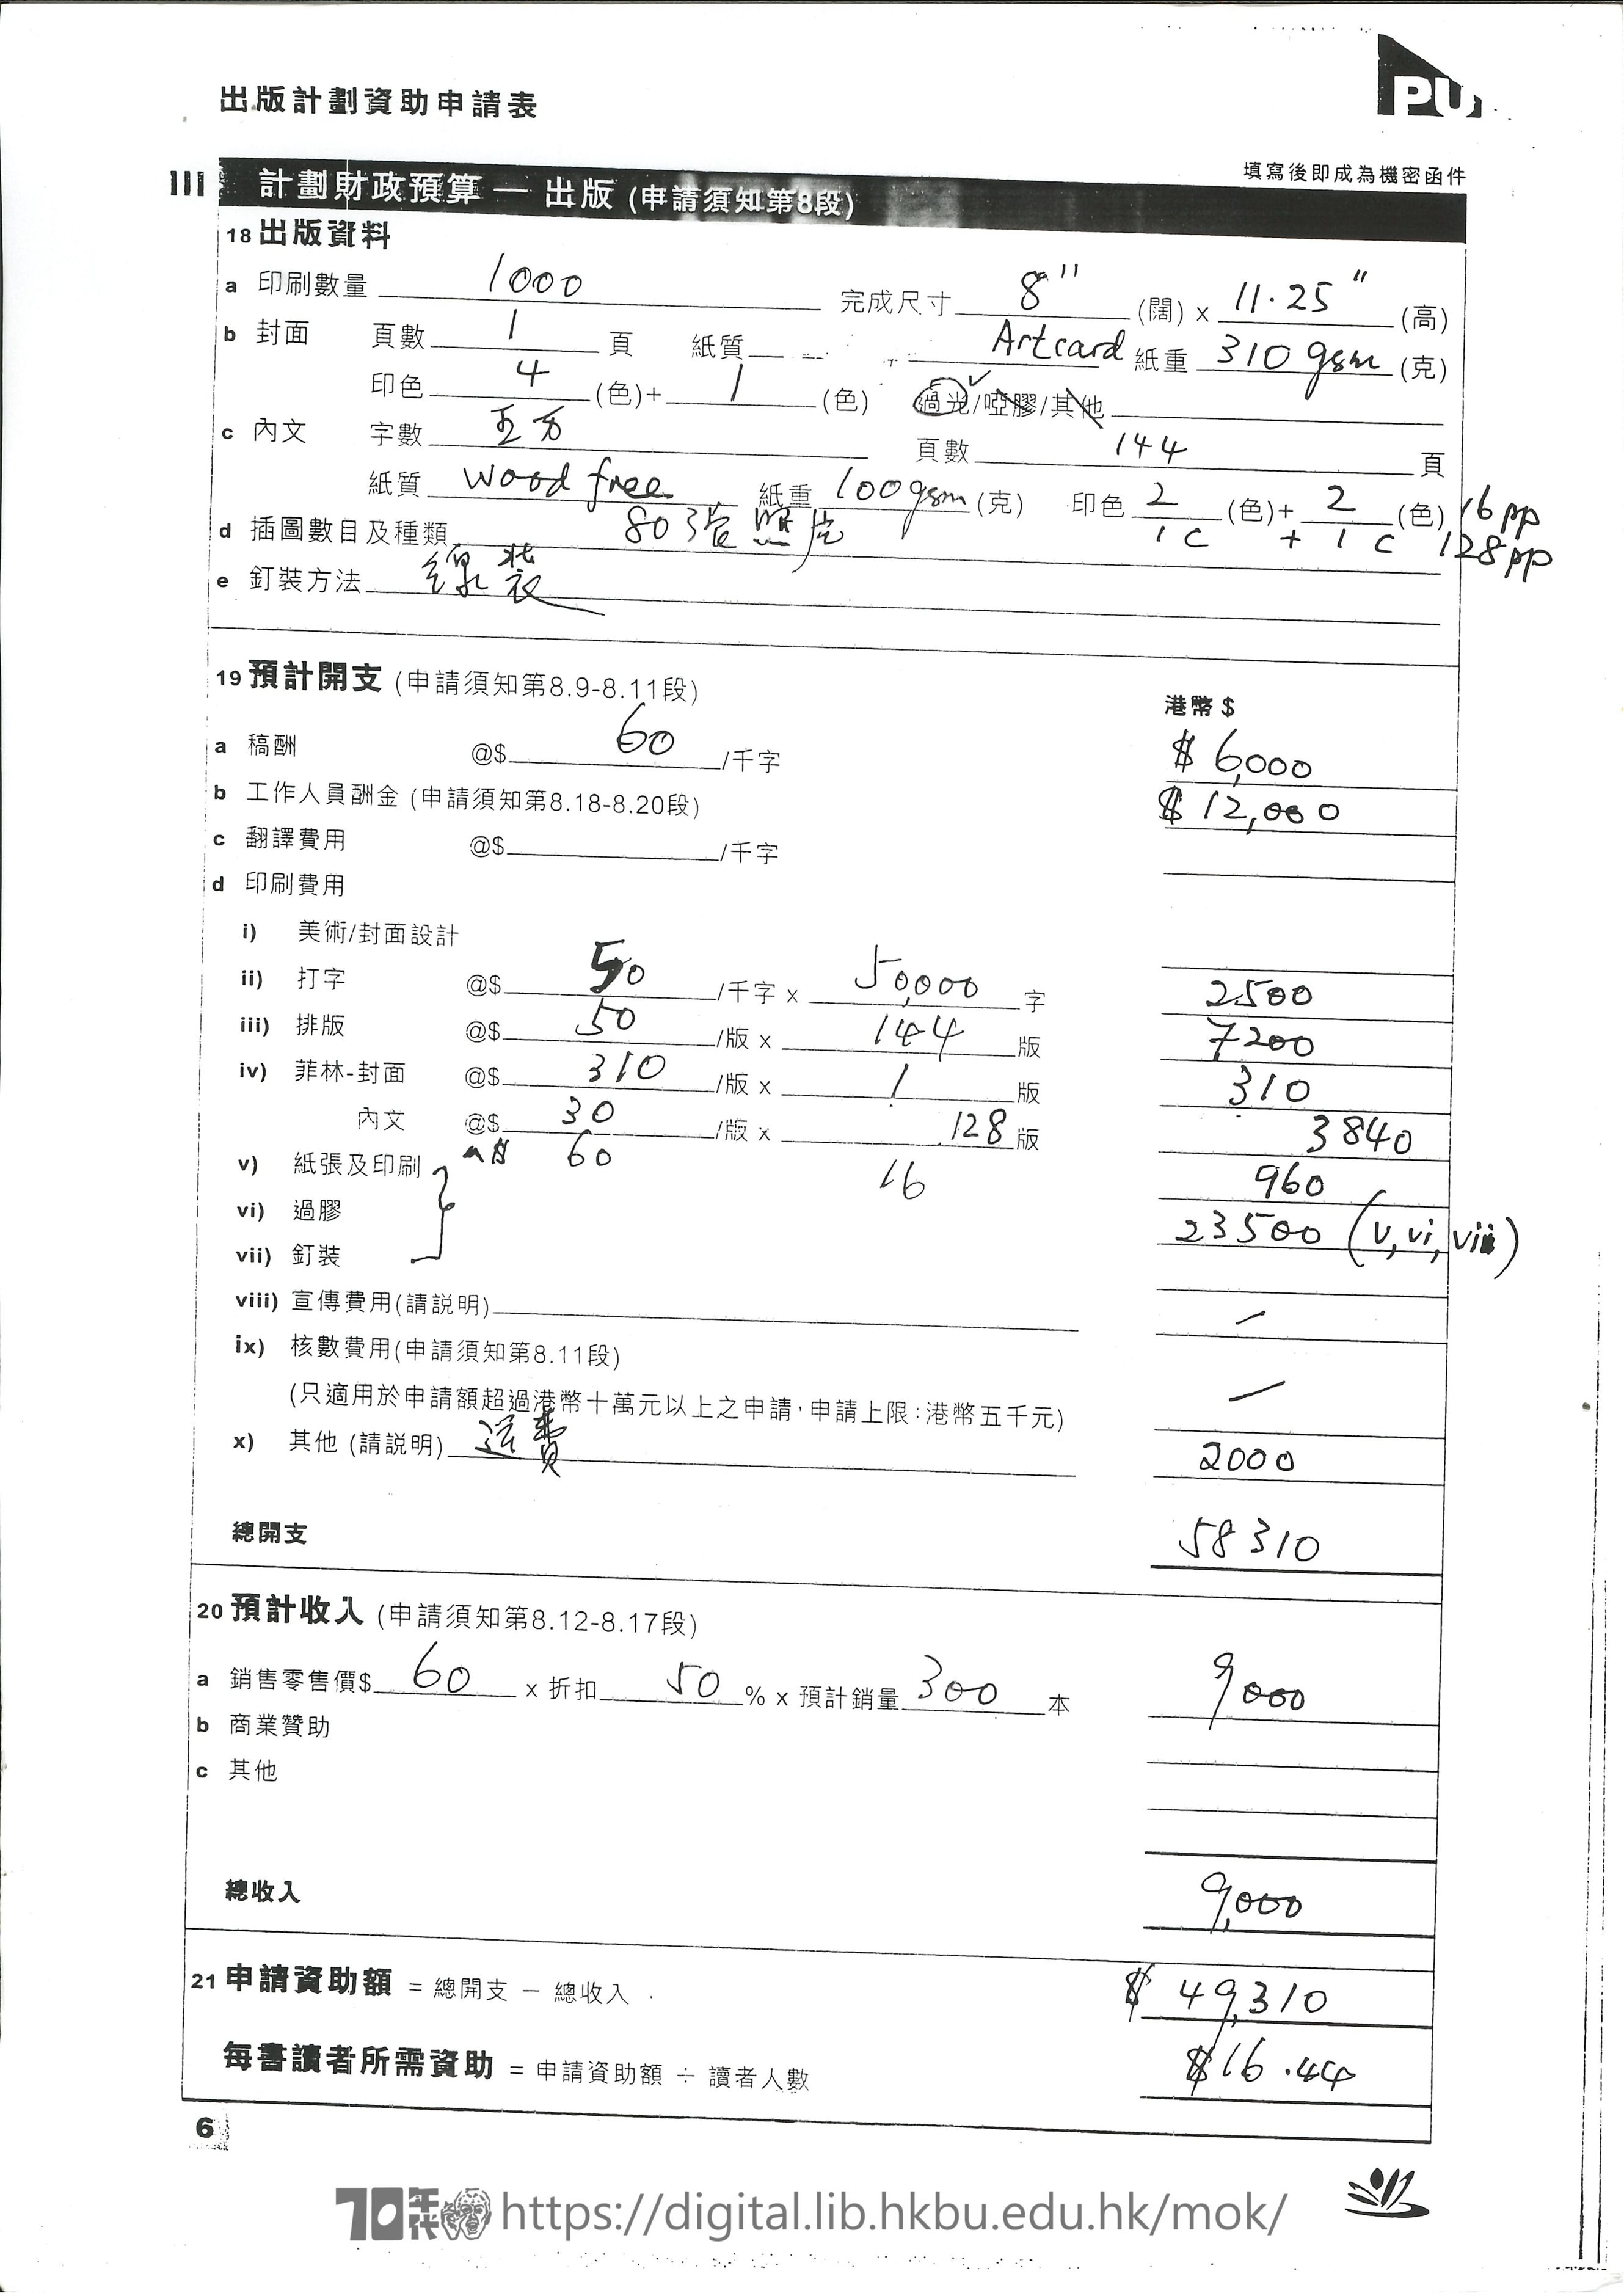 出版計劃資助申請表
PU
填寫後即成為機密函件
III 計劃財政預算 — 出版 (申請須知第8段)
18 出版資料
a 印刷數量 1000 完成尺寸 8" (闊) x 11.25" (高)
b 封面 頁數 1 頁 紙質 Artcard 紙重 310 gsm (克)
印色 4 (色)+ 1 (色) 過光/啞膠/其他
c 內文 字數 五万 頁數 144 頁
紙質 wood free 紙重 100gsm (克) 印色 2 (色)+ 2 (色) 16pp
1C + 1C 128pp
d 插圖數目及種類 80張照片
e 釘裝方法 線裝
19 預計開支 (申請須知第8.9-8.11段) 港幣 $
a 稿酬 @$ 60 /千字 $ 6,000
b 工作人員酬金 (申請須知第8.18-8.20段) $ 12,000
c 翻譯費用 @$ /千字
d 印刷費用
i) 美術/封面設計
ii) 打字 @$ 50 /千字 x 50,000 字 2500
iii) 排版 @$ 50 /版 x 144 版 7200
iv) 菲林-封面 @$ 310 /版 x 1 版 310
內文 @$ 30 /版 x 128 版 3840
v) 紙張及印刷 @$ 60 16 960
vi) 過膠 23500 (v, vi, vii)
vii) 釘裝
viii) 宣傳費用(請説明) —
ix) 核數費用(申請須知第8.11段)
(只適用於申請額超過港幣十萬元以上之申請，申請上限：港幣五千元) —
x) 其他 (請説明) 運費 2000
總開支 58310
20 預計收入 (申請須知第8.12-8.17段)
a 銷售零售價$ 60 x 折扣 50 % x 預計銷量 300 本 9,000
b 商業贊助
c 其他
總收入 9,000
21 申請資助額 = 總開支 — 總收入 $ 49,310
每書讀者所需資助 = 申請資助額 ÷ 讀者人數 $16.44
6
70年代 https://digital.lib.hkbu.edu.hk/mok/